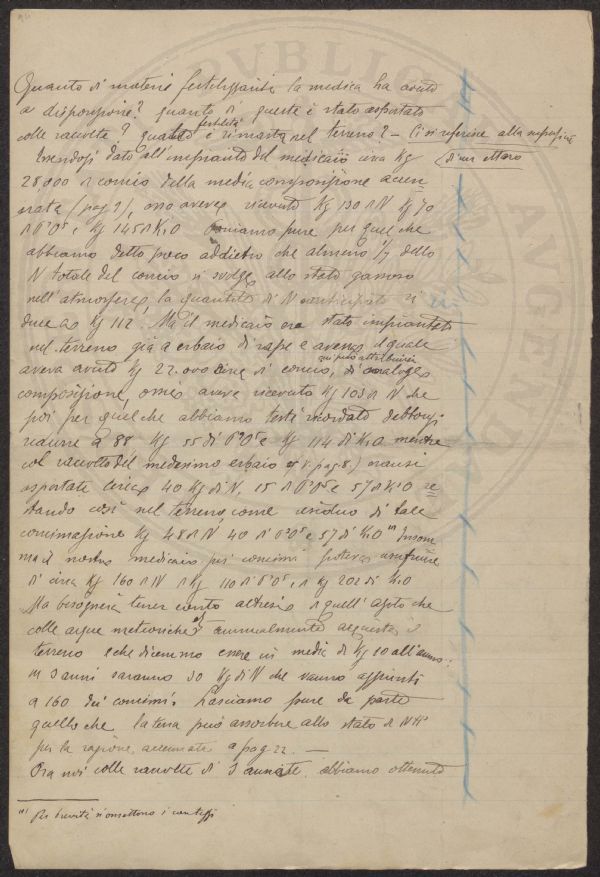 Quanto di materie fertilizzanti la medica ha avuto
a disposizione? quanto di queste è stato asportato
colle raccolte? quanta fertilità è rimasta nel terreno? — Ci si riferisce alla superficie
di un ettaro
Essendosi dato all'impianto del medicaio circa Kg
28,000 di concio della media composizione accen
nata (pag 9), esso aveva ricevuto Kg 130 di N Kg 70
di P²O⁵ e Kg 145 di K₂O pure per quel che
abbiamo detto poco addietro che almeno 1/7 dello
N totale del concio si svolge allo stato gassoso
nell'atmosfera, la quantità di N si ri
duce a Kg 112. Ma il medicaio era stato impiantato
nel terreno già a erbaio di rape e avena il quale
aveva avuto Kg 22.000 circa di concio, cui può attribuirsi analoga
composizione, ossia aveva ricevuto Kg 103 di N che
poi per quel che abbiamo testè ricordato debbonsi
ridurre a 88 Kg 55 di P²O⁵ e Kg 114 di K₂O mentre
col raccolto del medesimo erbaio (V. pag. 8) eransi
asportate circa 40 Kg di N, 15 di P²O⁵ e 57 di K²O re
stando così nel terreno come residuo di tale
concimazione Kg 48 di N 40 di P²O⁵ e 57 di K₂O ⁽¹⁾ Insom
ma il nostro medicaio pei concimi poteva usufruire
di circa Kg 160 di N di Kg 110 di P²O⁵, e di Kg 202 di K₂O
Ma bisogna tener conto altresì di quell'azoto che
colle acque meteoriche annualmente acquista il
terreno e che dicemmo essere in media di Kg 10 all'anno:
in 3 anni saranno 30 Kg di N che vanno aggiunti
a 160 dei concimi. Lasciamo pure da parte
quello che la terra può assorbire allo stato di NH³
per la ragione accennata a pag 22. —
Ora noi colle raccolte di 3 annate abbiamo ottenuto
⁽¹⁾ Per brevità si omettono i conteggi